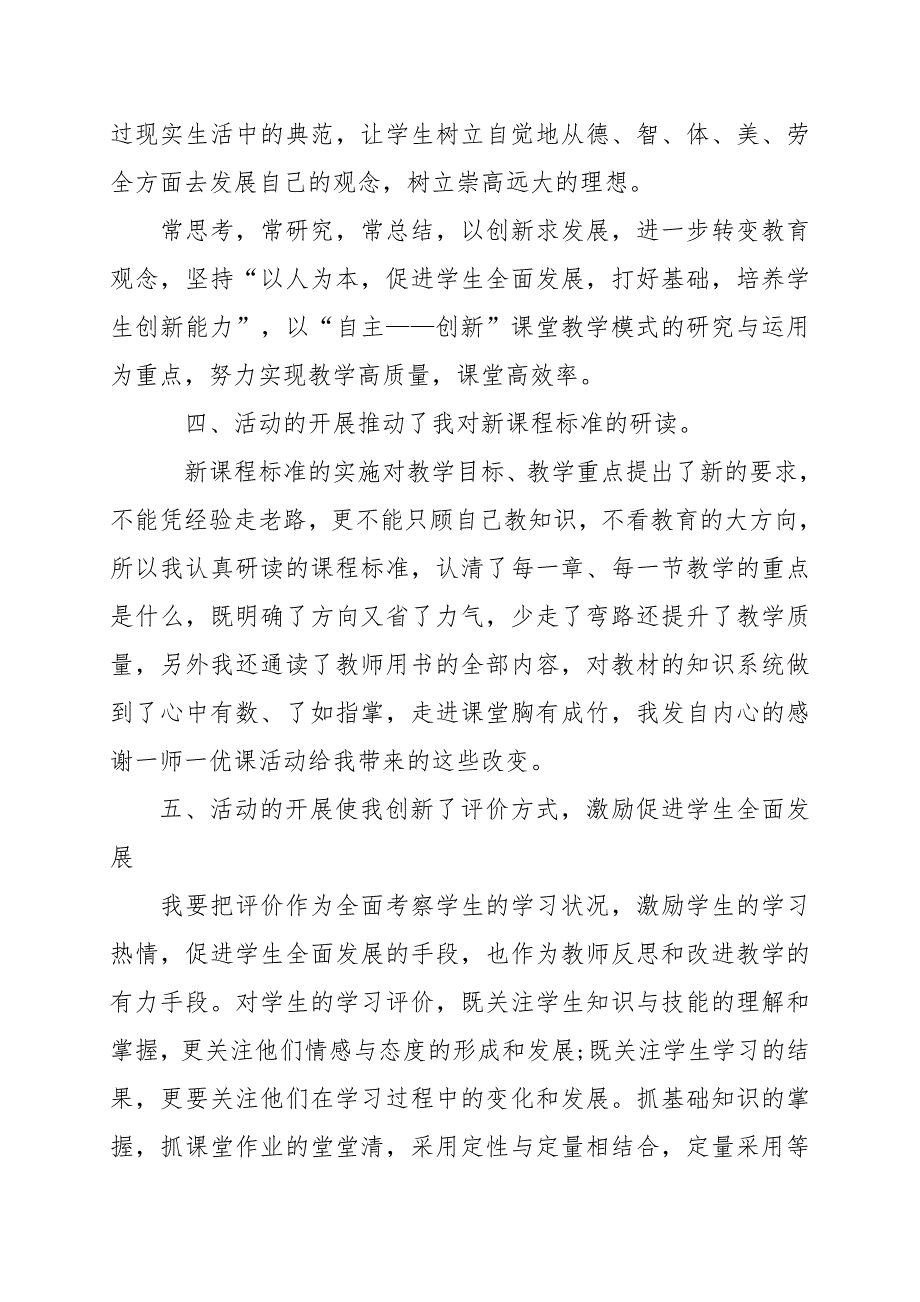 过现实生活中的典范，让学生树立自觉地从德、智、体、美、劳
全方面去发展自己的观念，树立崇高远大的理想。
常思考，常研究，常总结，以创新求发展，进一步转变教育
观念，坚持“以人为本，促进学生全面发展，打好基础，培养学
生创新能力”，以“自主——创新”课堂教学模式的研究与运用
为重点，努力实现教学高质量，课堂高效率。
四、活动的开展推动了我对新课程标准的研读。
新课程标准的实施对教学目标、教学重点提出了新的要求，
不能凭经验走老路，更不能只顾自己教知识，不看教育的大方向，
所以我认真研读的课程标准，认清了每一章、每一节教学的重点
是什么，既明确了方向又省了力气，少走了弯路还提升了教学质
量，另外我还通读了教师用书的全部内容，对教材的知识系统做
到了心中有数、了如指掌，走进课堂胸有成竹，我发自内心的感
谢一师一优课活动给我带来的这些改变。
五、活动的开展使我创新了评价方式，激励促进学生全面发
展
我要把评价作为全面考察学生的学习状况，激励学生的学习
热情，促进学生全面发展的手段，也作为教师反思和改进教学的
有力手段。对学生的学习评价，既关注学生知识与技能的理解和
掌握，更关注他们情感与态度的形成和发展;既关注学生学习的结
果，更要关注他们在学习过程中的变化和发展。抓基础知识的掌
握，抓课堂作业的堂堂清，采用定性与定量相结合，定量采用等